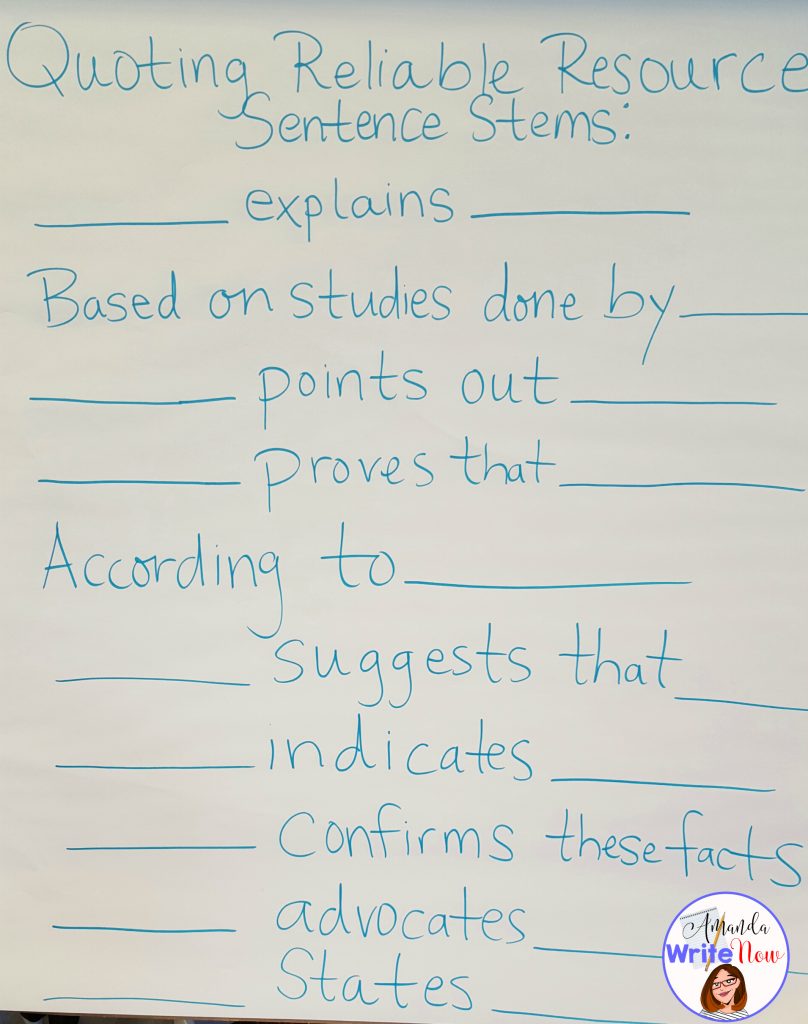 Quoting Reliable Resource
Sentence Stems:
______ explains ______
Based on studies done by ______
______ points out ______
______ proves that ______
According to ______
______ suggests that ______
______ indicates ______
______ confirms these facts
______ advocates ______
______ States ______
Amanda
Write Now